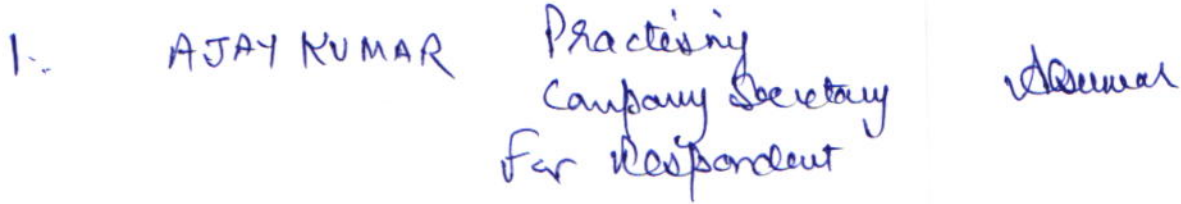 1. AJAY KUMAR Practising
Company Secretary AKumar
For Respondent